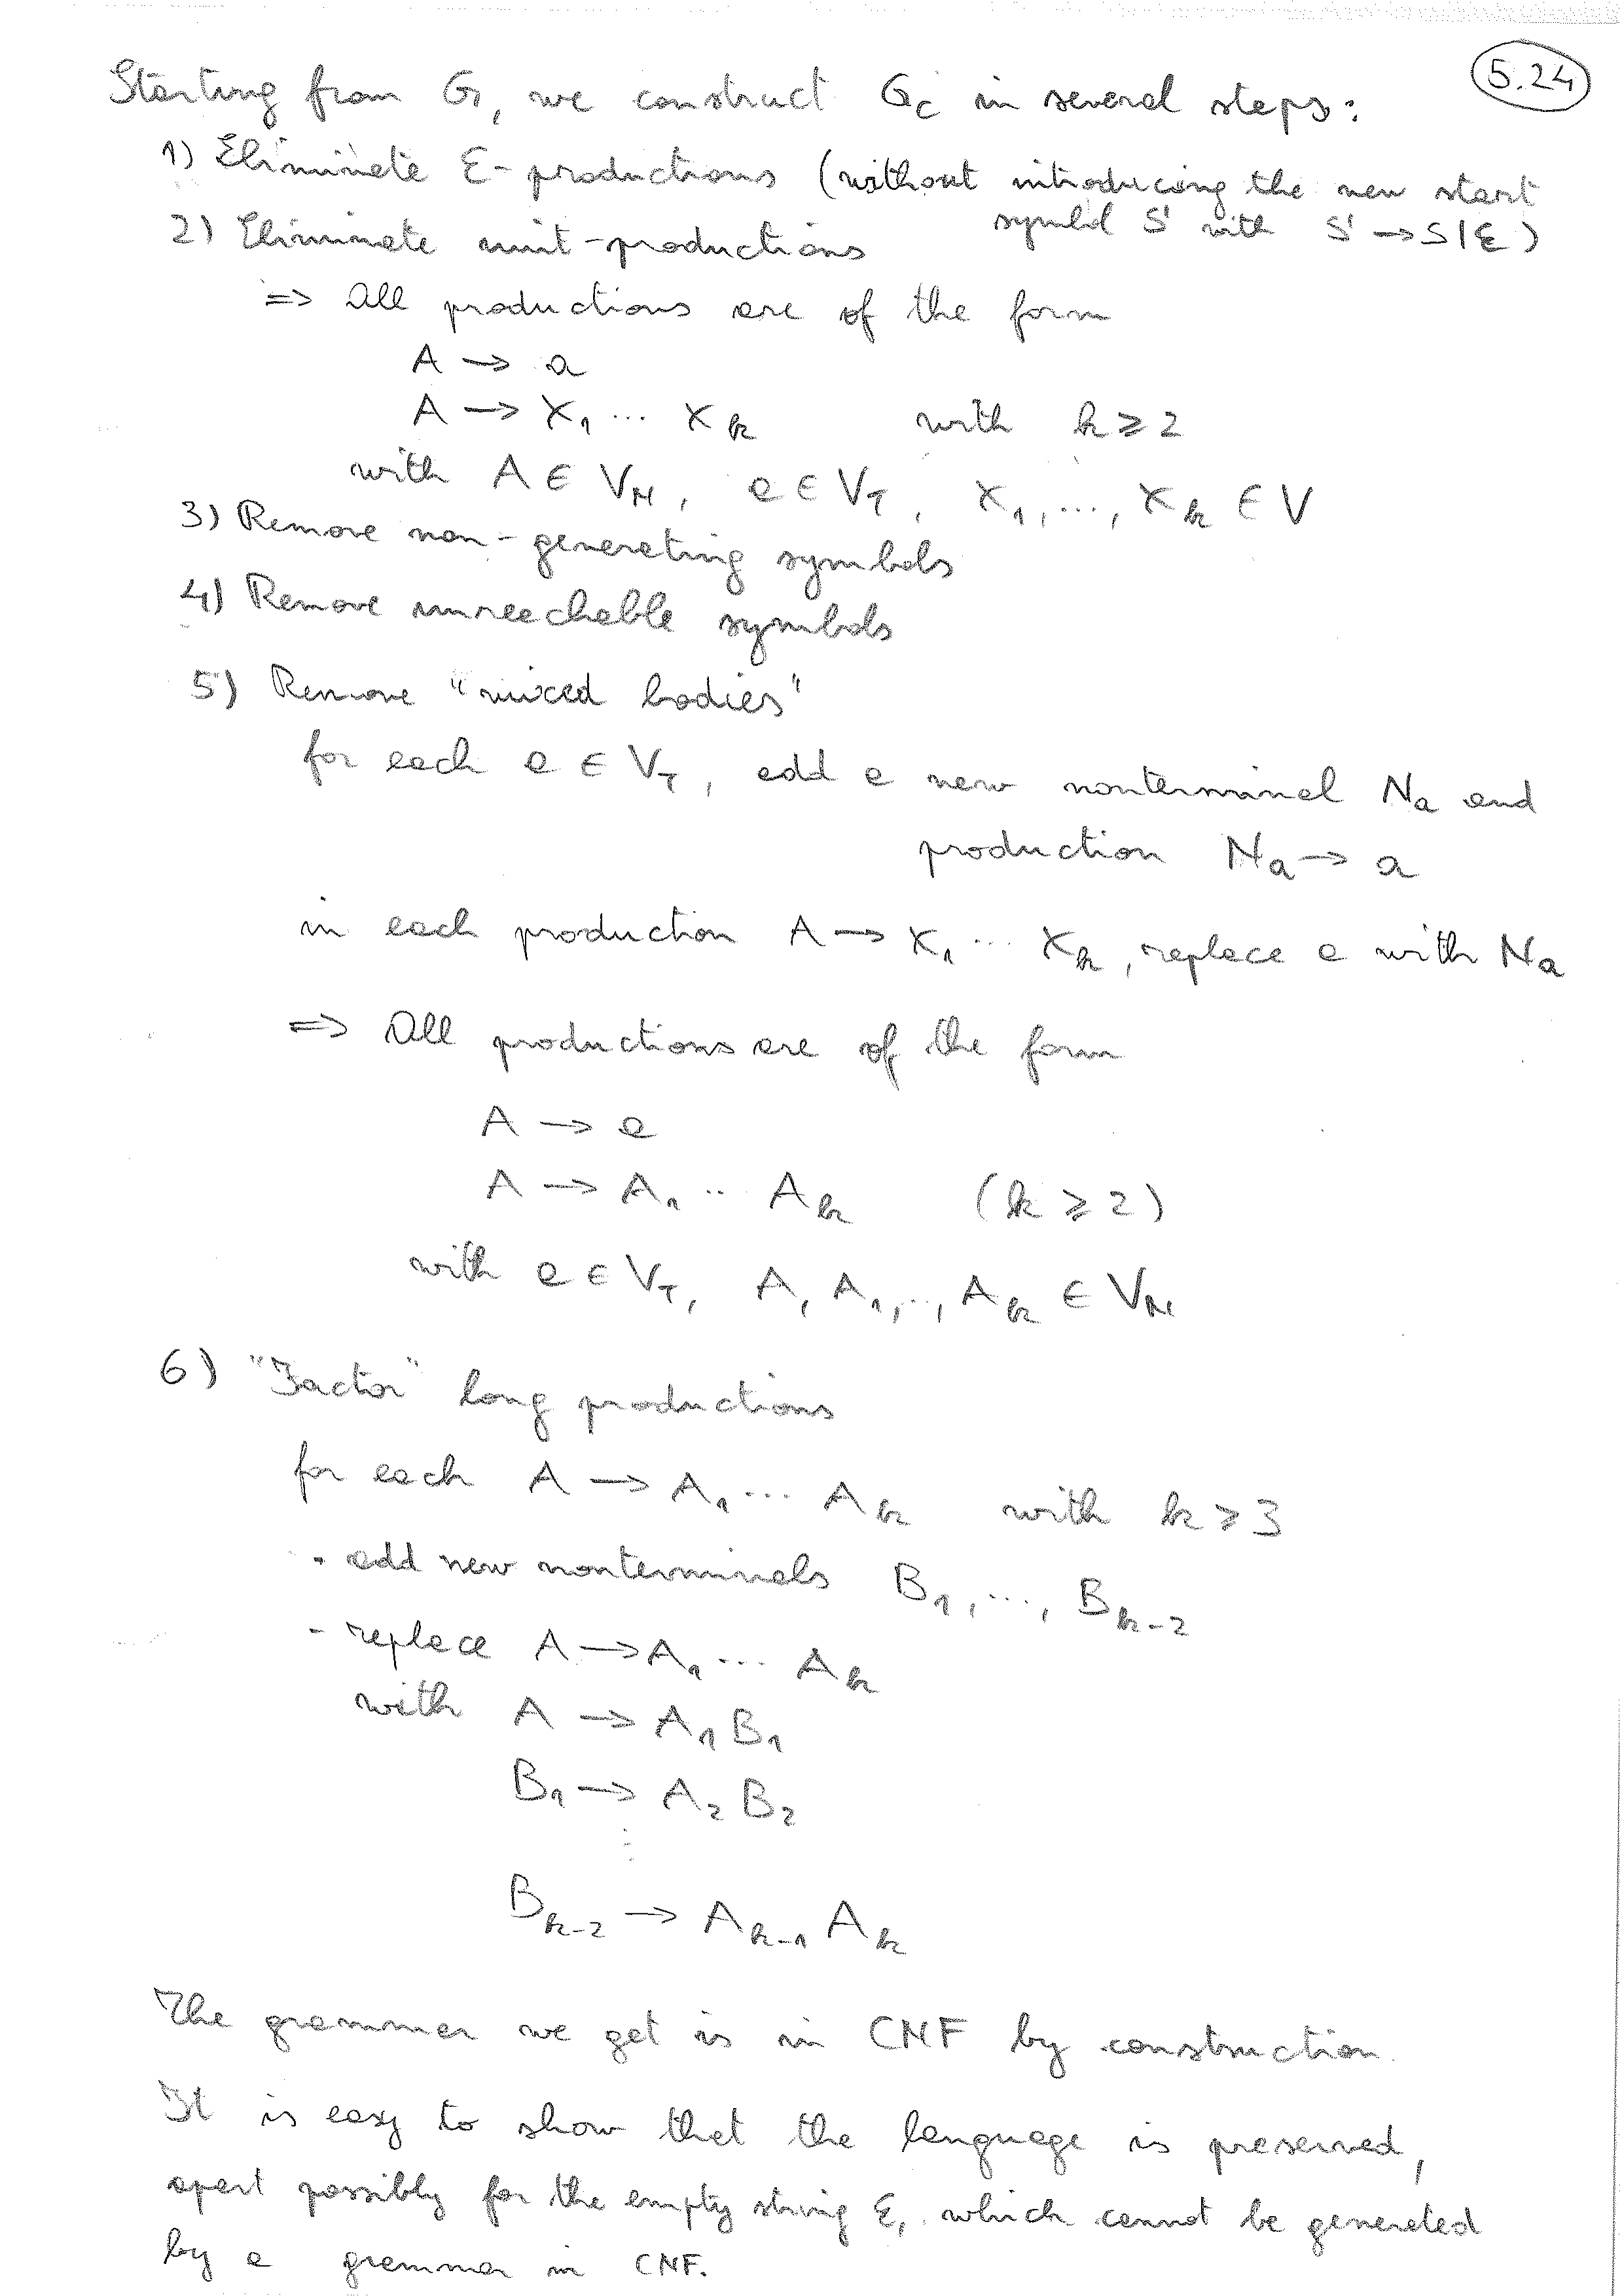 5.24
Starting from G, we construct G_C in several steps:
1) Eliminate ε-productions (without introducing the new start
symbol S' with S' → S|ε)
2) Eliminate unit-productions
=> All productions are of the form
A → a
A → X₁ ... X_k with k ≥ 2
with A ∈ V_N, a ∈ V_T, X₁, ..., X_k ∈ V
3) Remove non-generating symbols
4) Remove unreachable symbols
5) Remove "mixed bodies"
for each a ∈ V_T, add a new nonterminal N_a and
production N_a → a
in each production A → X₁ ... X_k, replace a with N_a
=> All productions are of the form
A → a
A → A₁ .. A_k (k ≥ 2)
with a ∈ V_T, A, A₁, .., A_k ∈ V_N
6) "Factor" long productions
for each A → A₁ ... A_k with k ≥ 3
- add new nonterminals B₁, ..., B_{k-2}
- replace A → A₁ ... A_k
with A → A₁ B₁
B₁ → A₂ B₂
⋮
B_{k-2} → A_{k-1} A_k
The grammar we get is in CNF by construction.
It is easy to show that the language is preserved,
apart possibly for the empty string ε, which cannot be generated
by a grammar in CNF.